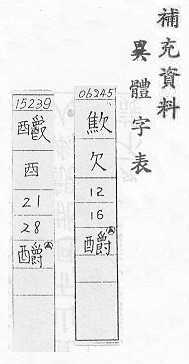 補充資料
異體字表
06245
欠
12
16
釂
15239
酉
21
28
釂